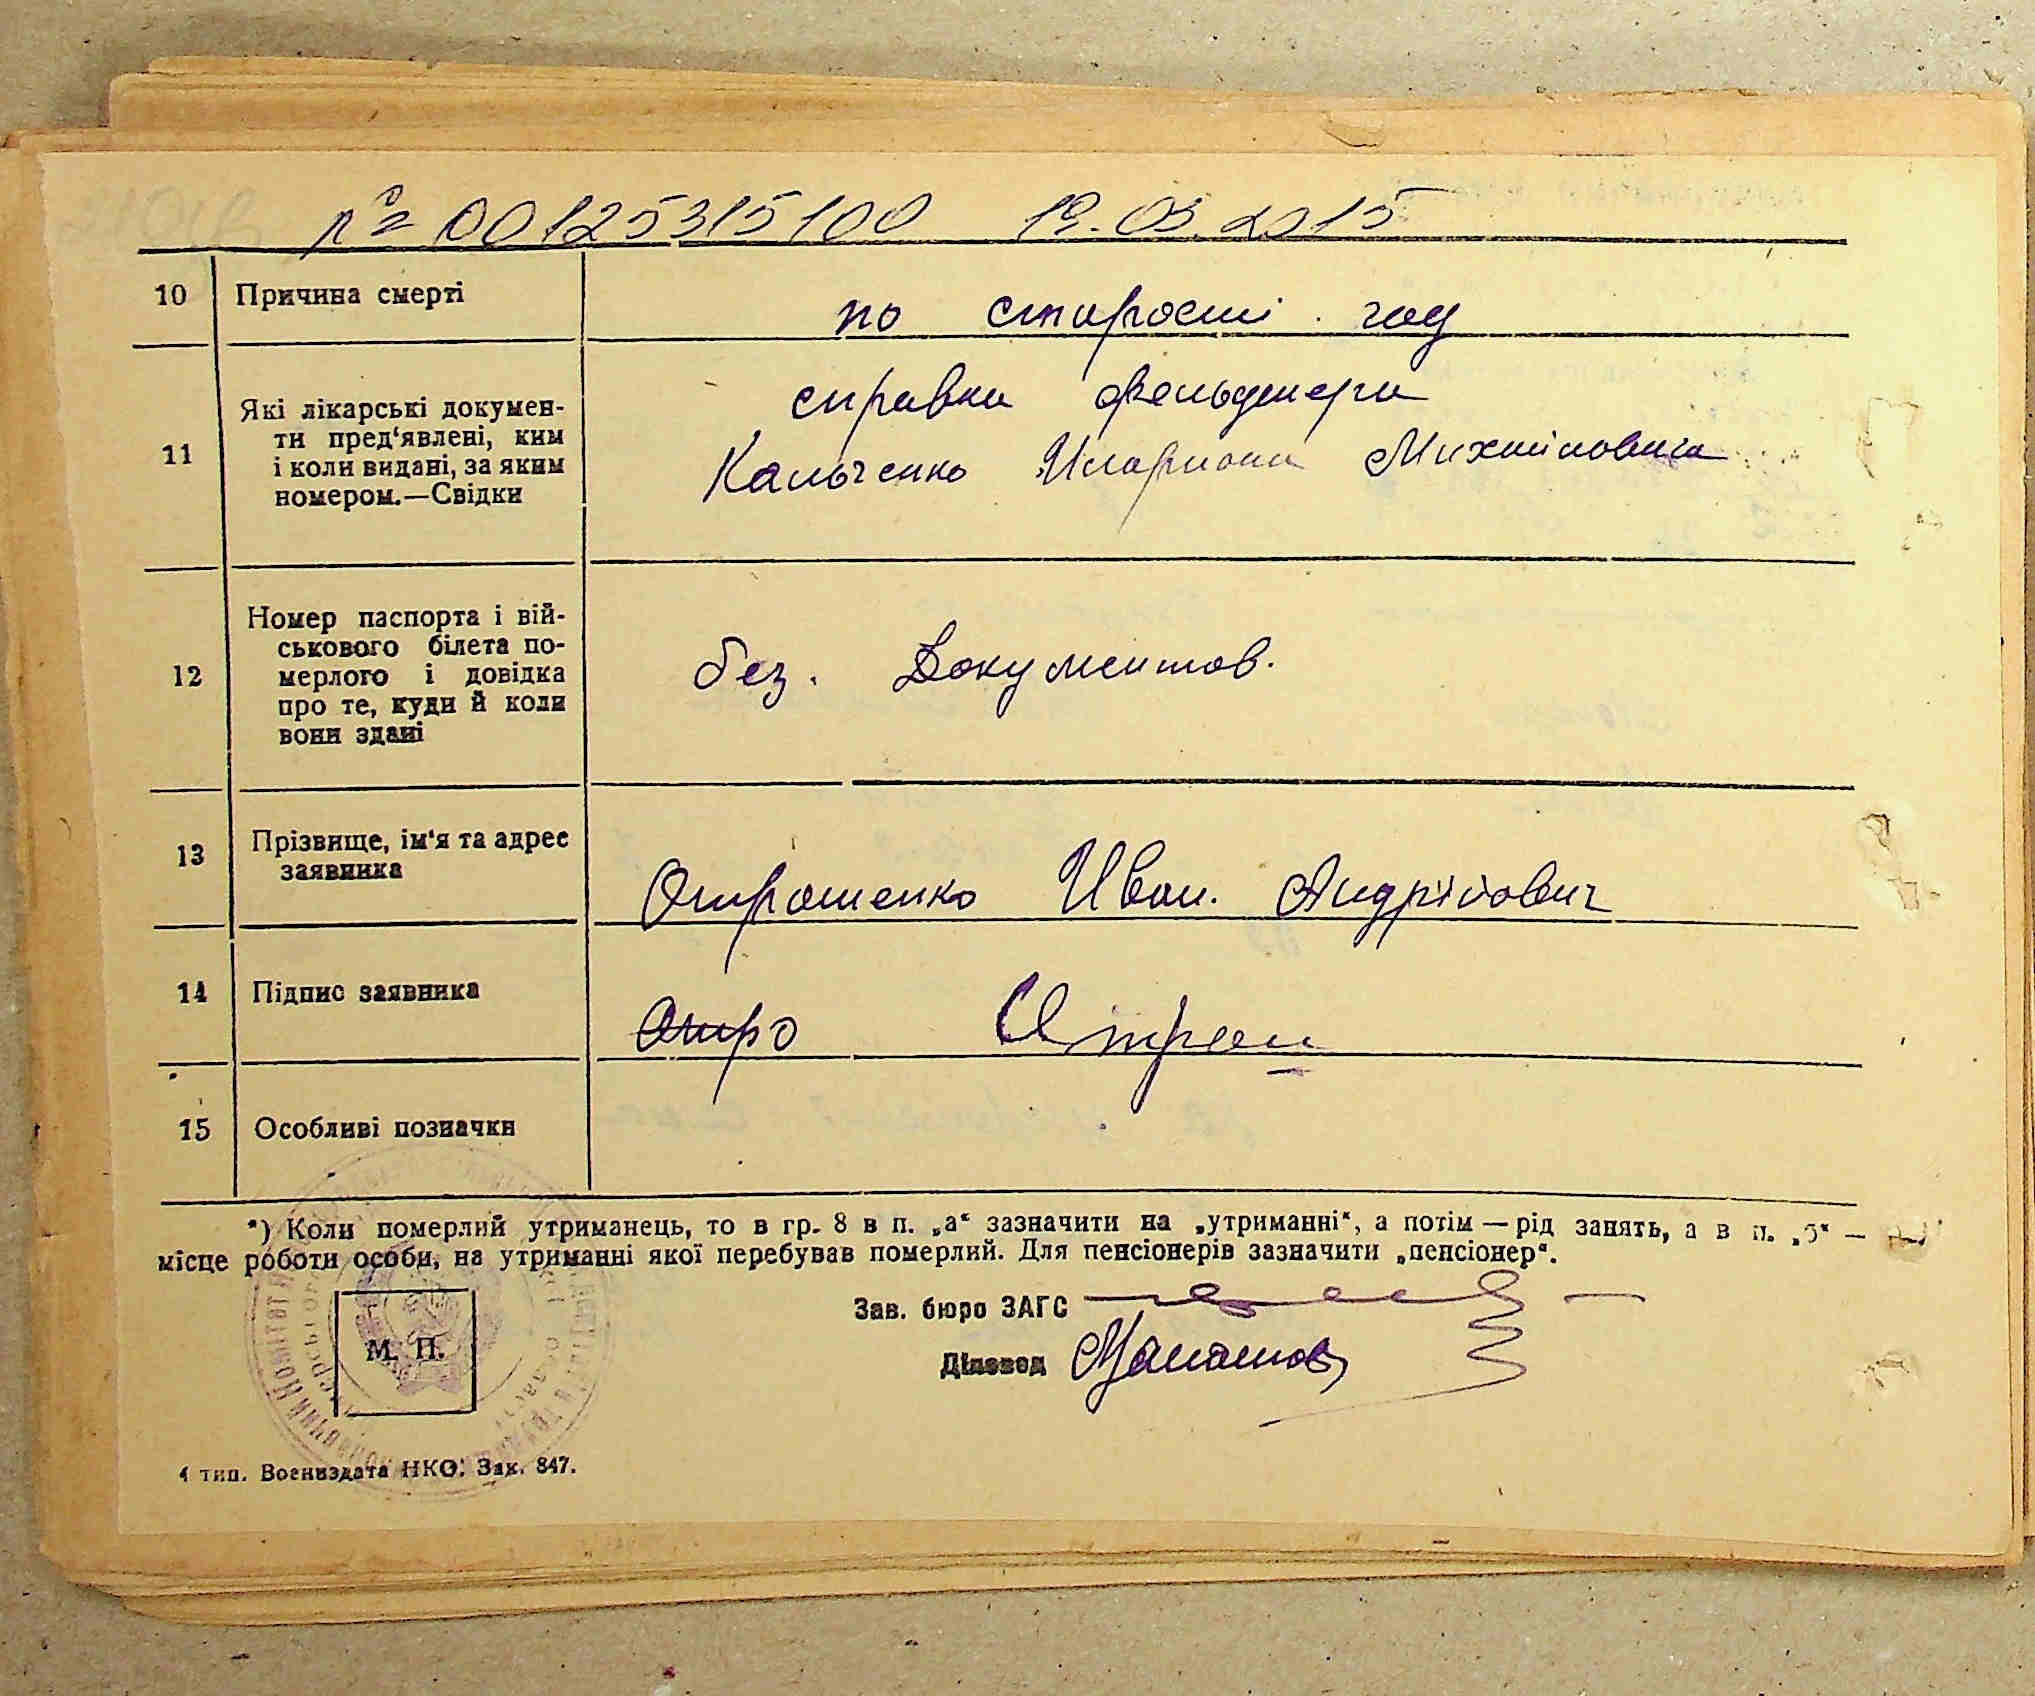 № 00125315100 19.03.2015
10 Причина смерті
по старості год
11 Які лікарські докумен-
ти пред‘явлені, ким
і коли видані, за яким
номером.—Свідки
справка фельдшера
Кальченко Илариона Михайловича
12 Номер паспорта і вій-
ськового білета по-
мерлого і довідка
про те, куди й коли
вони здані
без. Документов.
13 Прізвище, ім‘я та адрес
заявника
Отрошенко Иван. Андрійович
14 Підпис заявника
Отро Отрош
15 Особливі позначки
*) Коли померлий утриманець, то в гр. 8 в п. „а“ зазначити на „утриманні“, а потім — рід занять, а в п. „б“ —
місце роботи особи, на утриманні якої перебував померлий. Для пенсіонерів зазначити „пенсіонер“.
Зав. бюро ЗАГС
М. П.
Діловод
тип. Воениздата НКО. Зак. 847.